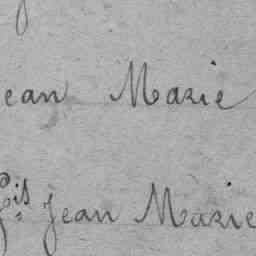 ean Marie
fis Jean Marie